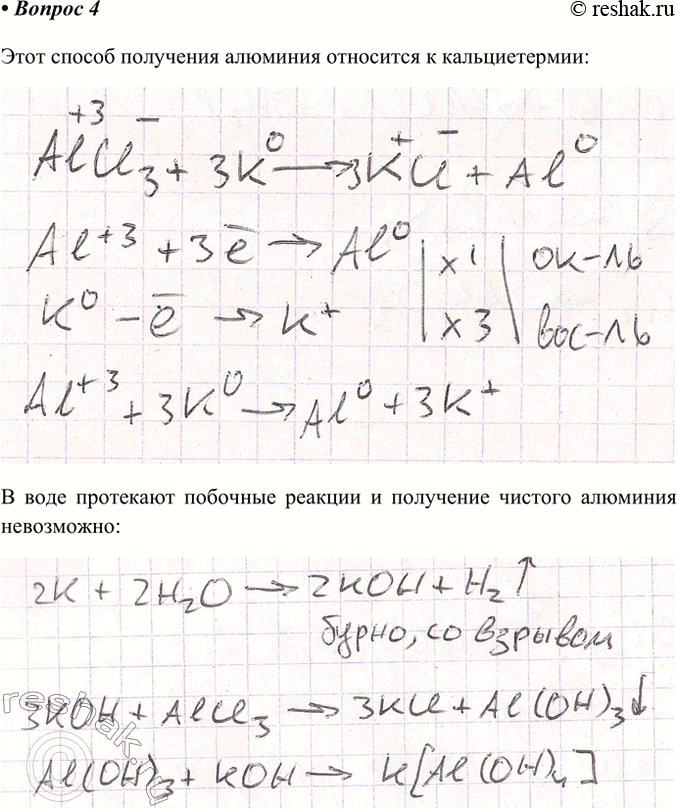 • Вопрос 4
© reshak.ru
Этот способ получения алюминия относится к кальциетермии:
+3 −
AlCl₃ + 3K⁰ → 3K⁺Cl⁻ + Al⁰
Al⁺³ + 3ē → Al⁰ | x1 | ок-ль
K⁰ − ē → K⁺ | x3 | вос-ль
Al⁺³ + 3K⁰ → Al⁰ + 3K⁺
В воде протекают побочные реакции и получение чистого алюминия
невозможно:
2K + 2H₂O → 2KOH + H₂↑
бурно, со взрывом
3KOH + AlCl₃ → 3KCl + Al(OH)₃↓
Al(OH)₃ + KOH → K[Al(OH)₄]
reshak.ru